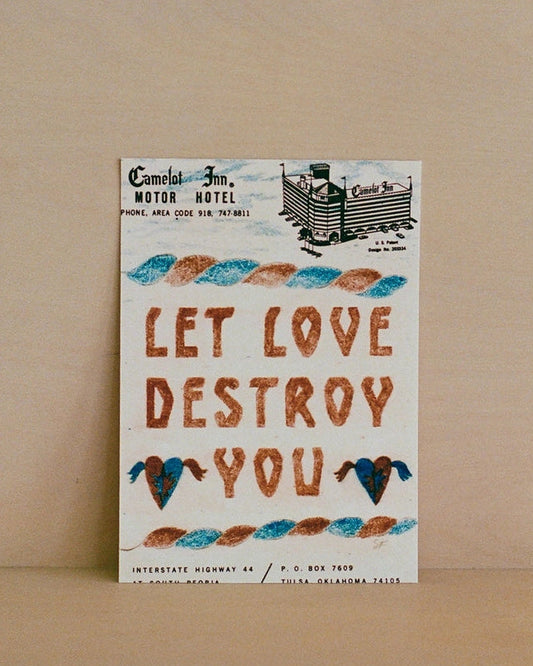 Camelot Inn.
MOTOR HOTEL
PHONE, AREA CODE 918, 747-8811
Camelot Inn
U.S. Patent
Design No. 203534
LET LOVE
DESTROY
YOU
INTERSTATE HIGHWAY 44 / P. O. BOX 7609
AT SOUTH PEORIA TULSA, OKLAHOMA 74105